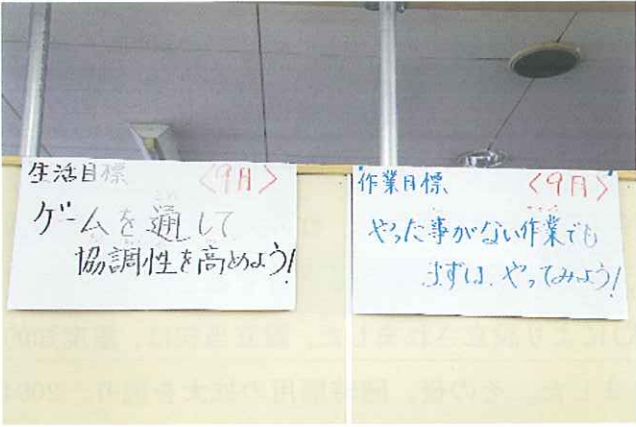 生活目標 〈9月〉
ゲームを通して
協調性を高めよう!
作業目標 〈9月〉
やった事がない作業でも
まずは、やってみよう!